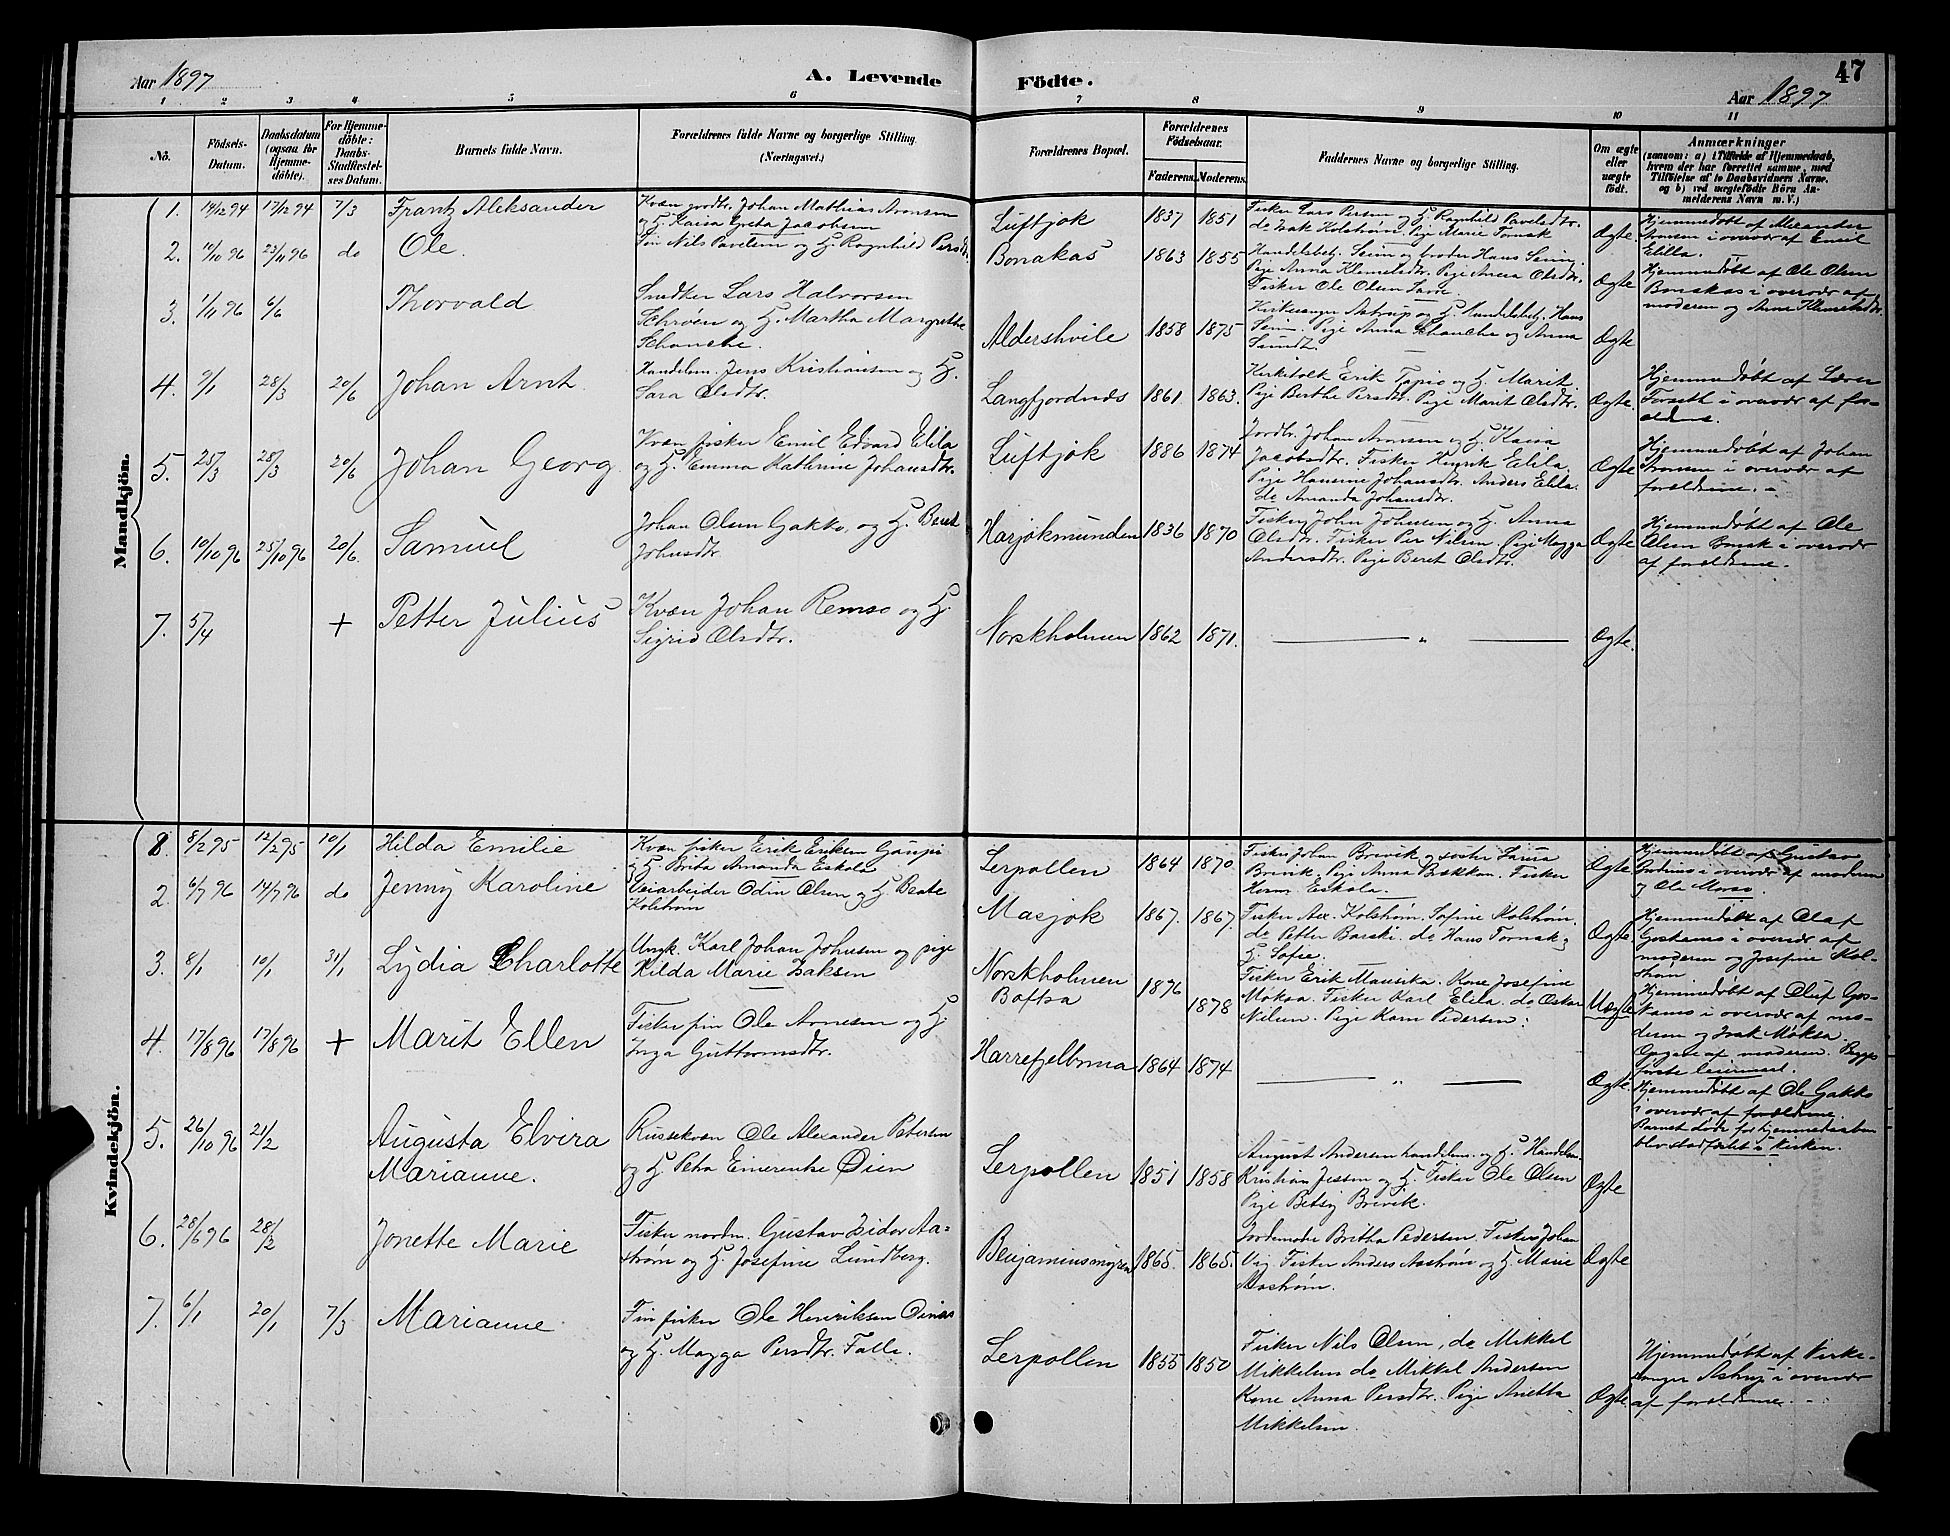 Aar 1897
A. Levende
Födte.
47
Aar 1897
1 2 3 4 5 6 7 8 9 10 11
Nö.
Födsels-
Datum.
Daabsdatum
(ogsaa for
Hjemme-
döbte).
For Hjemme-
döbte:
Daabs-
Stadfæstel-
ses Datum.
Barnets fulde Navn.
Forældrenes fulde Navne og borgerlige Stilling.
(Næringsvei.)
Forældrenes Bopæl.
Forældrenes
Födselsaar.
Faderens.
Moderens.
Faddernes Navne og borgerlige Stilling.
Om ægte
eller
uægte
födt.
Anmærkninger
(saasom: a) i Tilfælde af Hjemmedaab,
hvem der har forrettet samme, med
Tilföielse af to Daabsvidners Navne.
og b) ved uægtefödte Börn An-
melderens Navn m. V.)
Mandkjön.
1. 14/12 94 17/12 94 7/3 Frantz Aleksander
Kvæn jordbr. Johan Mathias Aronsen
og H. Kaisa Greta Jacobsen
Luftjok 1837 1851
Fisker Lars Persen og H. Ragnhild Pavelsdtr.
do Isak Kolstrøm. Pige Marie Tornsk
Ægte.
Hjemmedøbt af Alexander
Aronsen i overvær af Emil
Elilla.
2. 14/10 96 23/11 96 do Ole.
Fin Nils Pavelsen og H. Ragnhild Persd.
Bonakas 1863 1855
Handelsbetj. Seim og broder Hans Seim,
Pige Anna Klemetsdtr. Pige Anna Olsdtr.
Fisker Ole Olsen
Ægte
Hjemmedøbt af Ole Olsen
Bonakas i overvær af
moderen og Anne Klemetsdtr.
3. 1/11 96 6/6 Thorvald
Snedker Lars Halvorsen
Schrøen og H. Martha Margrethe
Schanche.
Aldershvile 1858 1875
Kirkesanger Astrup og H. Handelsbetj. Hans
Seim. Pige Anna Schanche og Anna
Sundt.
Ægte
4. 9/1 28/3 20/6 Johan Arnt
Handelsm. Jens Kristiansen og H.
Sara Olsdtr.
Langfjordnæs 1861 1863.
Kirketolk Erik Tapio og H. Marit.
Pige Berthe Persdtr. Pige Marit Olsdtr.
Ægte.
Hjemmedøbt af Lærer
Forseth i overvær af for-
ældrene.
5. 25/3 28/3 20/6 Johan Georg
Kvæn fisker Emil Edvard Elila
og H. Emma Kathrine Johansdtr.
Luftjok 1886 1874
Jordbr. Johan Aronsen og H. Kaisa
Jacobsdtr. Fisker Henrik Elila.
Pige Hansine Johansdtr. Anders Elila.
do Amanda Johansdtr.
Ægte
Hjemmedøbt af Johan
Aronsen i overvær af
forældrene.
6. 10/10 96 25/10 96 20/6 Samuel
Johan Olsen Gakko, og H. Beret
Johnsdtr.
Harjokmunden 1836 1870
Fisker John Johnsen og H. Anna
Olsdtr. Fisker Per Nilsen. Pige Magga
Andersdtr. Pige Beret Olsdtr.
Ægte
Hjemmedøbt af Ole
Olsen i overvær
af forældrene.
7. 5/4 + Petter Julius
Kvæn Johan Remso og H.
Sigrid Olsdtr.
Norskholmen 1862 1871.
Ægte.
Kvindekjön.
1. 8/2 95 12/2 95 10/1 Hilda Emilie
Kvæn fisker Erik Eriksen
og H. Brita Amanda Eskola
Lerpollen 1864 1870
Fisker Johan Brevik og søster Laura
Brevik. Pige Anna Bækkan. Fisker
Herm. Eskola.
Ægte
Hjemmedøbt af Gustav
i overvær af moderen
og Ole Moras.
2. 6/7 96 14/7 96 do Jenny Karoline
Veiarbeider Odin Olsen og H. Beate
Kolstrøm
Masjok 1867. 1867.
Fisker Alex. Kolstrøm. Sofine Kolstrøm.
do Petter Barski. do Hans Tornsk og
H. Sofie.
Ægte
Hjemmedøbt af Olaf
i overvær af
moderen og Josefine Kol-
strøm
3. 8/1 10/1 31/1 Lydia Charlotte
Ungk. Karl Johan Johnsen og pige
Hilda Marie Isaksen
Norskholmen
Boftsa
1876 1878
Fisker Erik Mansika. Kone Josefine
Moksa. Fisker Karl Elila. do Oskar
Nilsen. Pige Karn Pedersen:
Uægte
Hjemmedøbt af Oluf
i overvær af mo-
deren og Isak Moksa.
Opgave af moderen. Begges
første leiermaal.
4. 17/8 96 17/8 96 + Marit Ellen
Fisker fin Ole Arnesen og H.
Inga Guttormsdtr.
Harrefjelboma 1864 1874
Ægte.
Hjemmedøbt af Ole Gakko
i overvær af forældrene.
Barnet døde før hjemmedaaben
blev stadfæstet i kirken.
5. 26/10 96 21/2 Augusta Elvira
Marianne.
Russekvæn Ole Alexander Petersen
og H. Petra Emerentse Øien
Lerpollen 1851 1858
August Andersen handelsm. og H. Handelsm.
Kristian Jessen og H. Fisker Ole Olsen
Pige Betsy Brevik.
Ægte
6. 28/6 96 28/2 Jonette Marie
Fisker nordm. Gustav Isidor Aa-
strøm og H. Josefine Lundberg.
Benjaminsmyren 1865. 1865.
Jordemoder Britha Pedersen. Fisker Johan
Vig. Fisker Anders Aastrøm og H. Marie
Aastrøm.
Ægte
7. 6/1 20/1 7/3 Marianne
Fin fisker Ole Henriksen
og H. Magga Persdtr. Falle.
Lerpollen 1855 1850
Fisker Nils Olsen, do Mikkel
Mikkelsen do Mikkel Andersen
Kone Anna Persdtr. Pige Anetta
Mikkelsen.
Ægte
Hjemmedøbt af Kirke-
sanger Astrup i overvær
af forældrene.